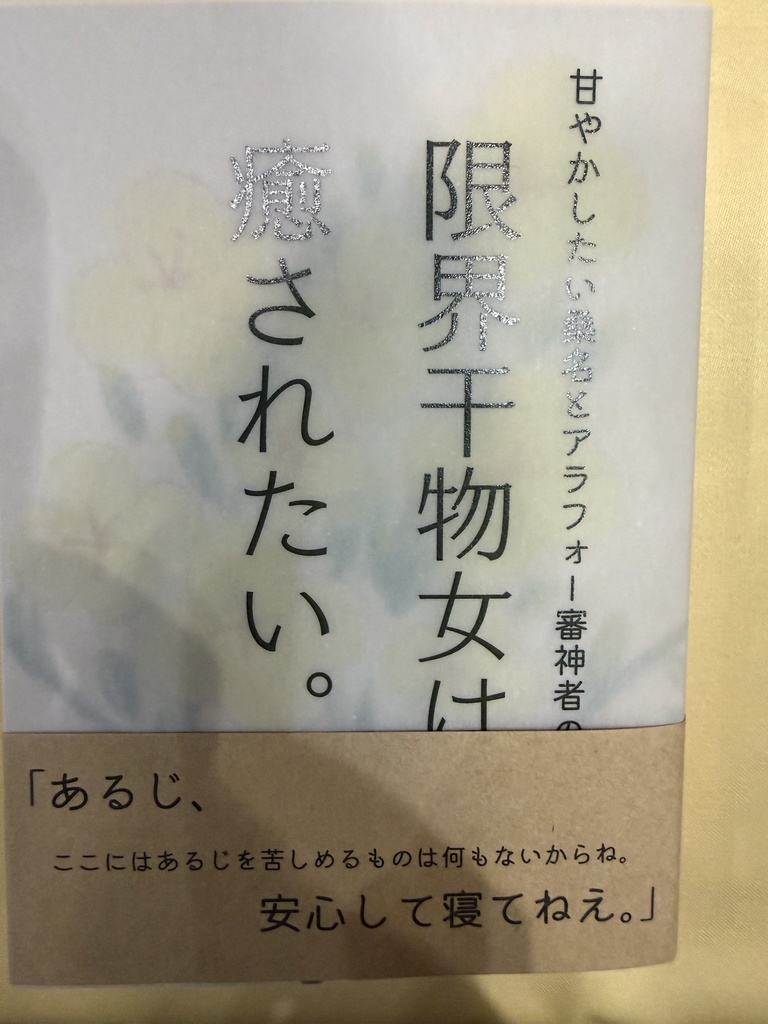 甘やかしたい桑名とアラフォー審神者の
限界干物女は
癒されたい。
「あるじ、
ここにはあるじを苦しめるものは何もないからね。
安心して寝てねえ。」